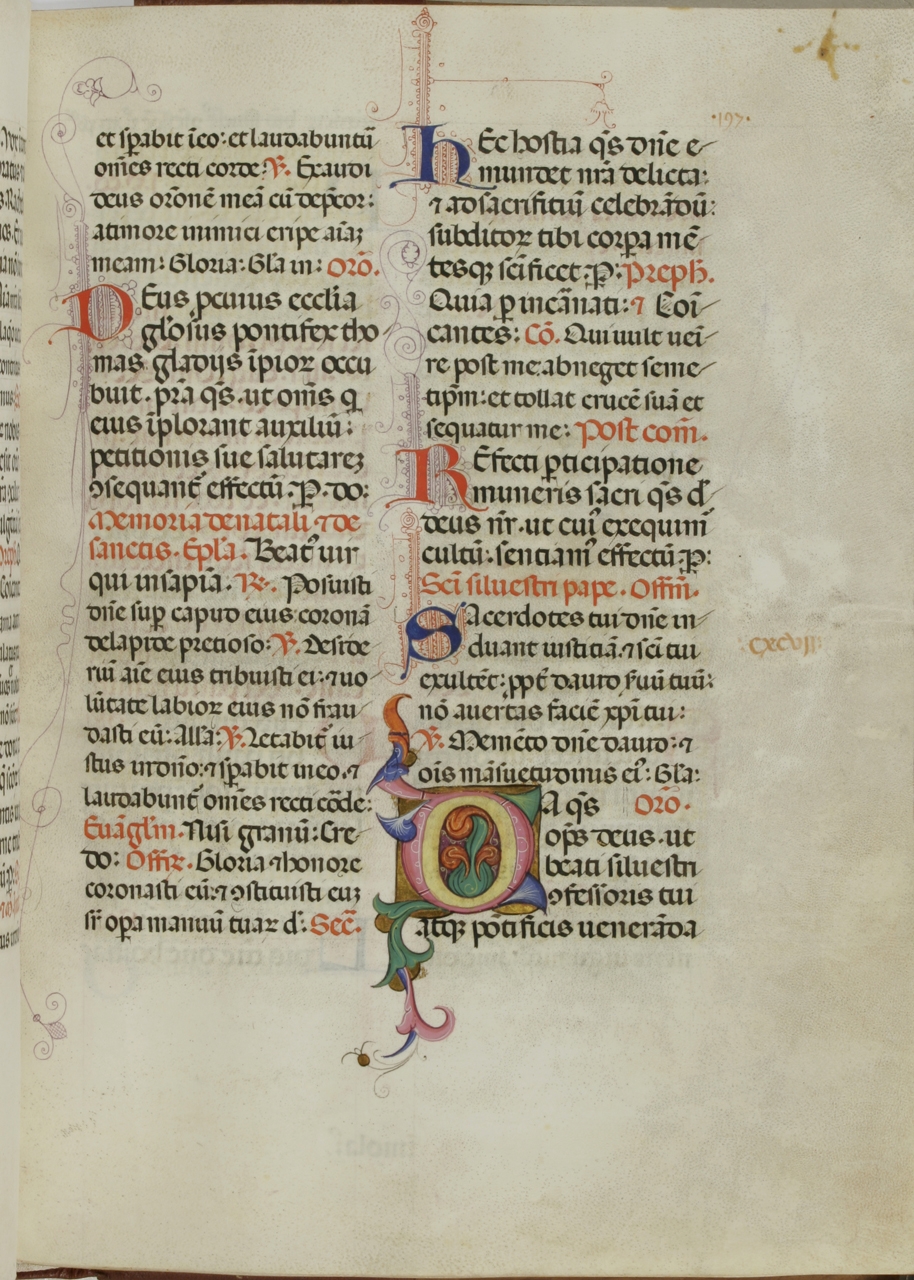 et sp̃abit ĩ eo: et laudabuntũ
om̃es recti corde. ℣. Exaudi
deus or̃onẽ meã cũ dep̃cor:
a timore inimici eripe aĩaꝫ
meam: Gloria: Gl̃a in: Or̃o.
DEus p cuius eccl̃ia
gl̃osus pontifex tho
mas gladijs ĩpioꝝ occu
buit. p̃ra q̃s. ut om̃s q
eius ĩplorant auxiliũ:
petitionis sue salutareꝫ
ꝯsequant̃ effectũ. P. do:
Memoria de natali ⁊ de
sanctis. Ep̃la. Beat᷒ uir
qui in sap̃ia. ℟. Posuisti
dñe sup caput eius coronã
de lapide precioso: ℣. Deside
riũ aĩe eius tribuisti ei: ⁊ uo
lũtate labioꝝ eius nõ frau
dasti eũ: All̃a: ℣. Letabit̃ iu
stus in dñо: ⁊ sp̃abit in eo. ⁊
laudabunt̃ om̃es recti cõde:
Euãgl̃m. Nisi granũ: Cre
do: Offr̃. Gloria ⁊ honore
coronasti eũ: ⁊ ꝯstituisti euꝫ
sr̃ opa manuũ tuaꝝ d̃: Sec̃.
·197·
HEc hostia q̃s dñe e
mundet nr̃a delicta:
⁊ ad sacrifitiũ celebrãdũ:
subditoꝝ tibi corpa mẽ
tesqꝫ sc̃ificet. P: Preph̃.
Quia p incãnati: ⁊ Coĩ
cantes: Cõ. Qui uult ueĩ
re post me: abneget seme
tip̃m: et tollat crucẽ suã et
sequatur me: Post com̃.
REfecti pticipatione
muneris sacri q̃s d̃
deus nr̃. ut cui᷒ exequim᷒
cultũ: sentiam᷒ effectũ P:
Sc̃i siluestri pape. Offm̃.
SAcerdotes tui dñe in
duant iusticiã. ⁊ sc̃i tui
CXCVII
exultẽt: ppt̃ dauid s̃uũ tuũ:
nõ auertas faciẽ xp̃i tui:
℣. Memẽto dñe dauid: ⁊
oĩs mãsuetudinis ei᷒: Gl̃a:
DA q̃s Or̃o.
op̃s deus. ut
beati siluestri
ꝯfessoris tui
atqꝫ põtificis uenerãda